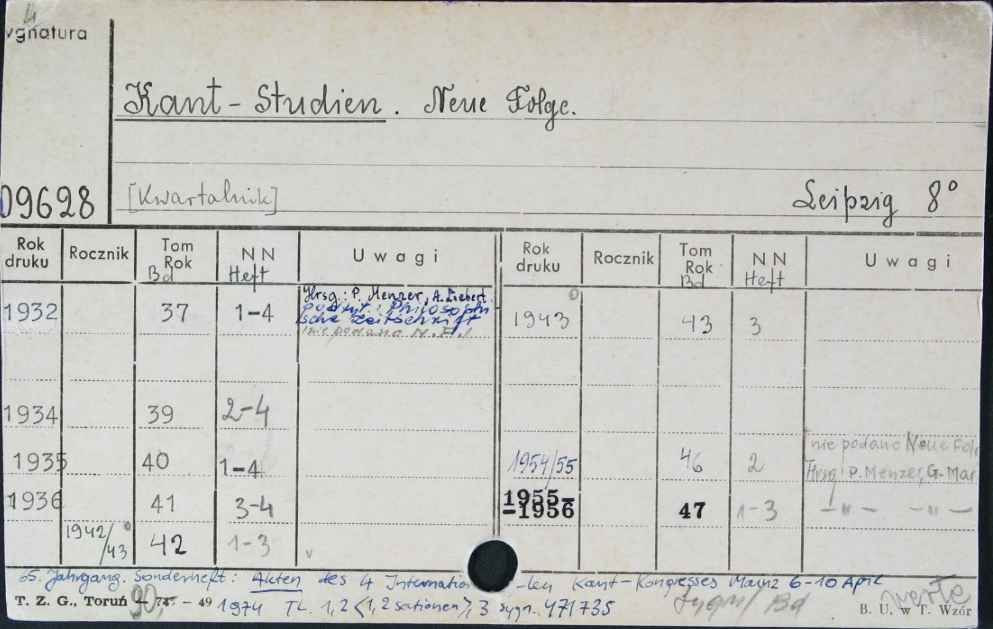 ygnatura
Kant-Studien. Neue Folge.
09628 [Kwartalnik] Leipzig 8°
Rok druku Rocznik Tom Rok Bd NN Heft Uwagi Rok druku Rocznik Tom Rok Bd NN Heft Uwagi
1932 37 1-4 Hrsg: P. Menzer, A. Liebert.
podtyt.: Philosophi
sche Zeitschrift
nie podano N.F.
1943 43 3
1934 39 2-4
1935 40 1-4
1954/55 46 2 nie podano Neue Fol
Hrsg: P. Menzer, G. Mar
1936 41 3-4
1955-
-1956 47 1-3 -"- -"-
1942/43 42 1-3
65. Jahrgang. Sonderheft: Akten des 4 Internation -len Kant-Kongresses Mainz 6-10 April
T. Z. G., Toruń 90, 74. - 49 1974 TL. 1, 2 <1, 2 sationen>, 3 sygn. 471735
B. U. w T. Wzór